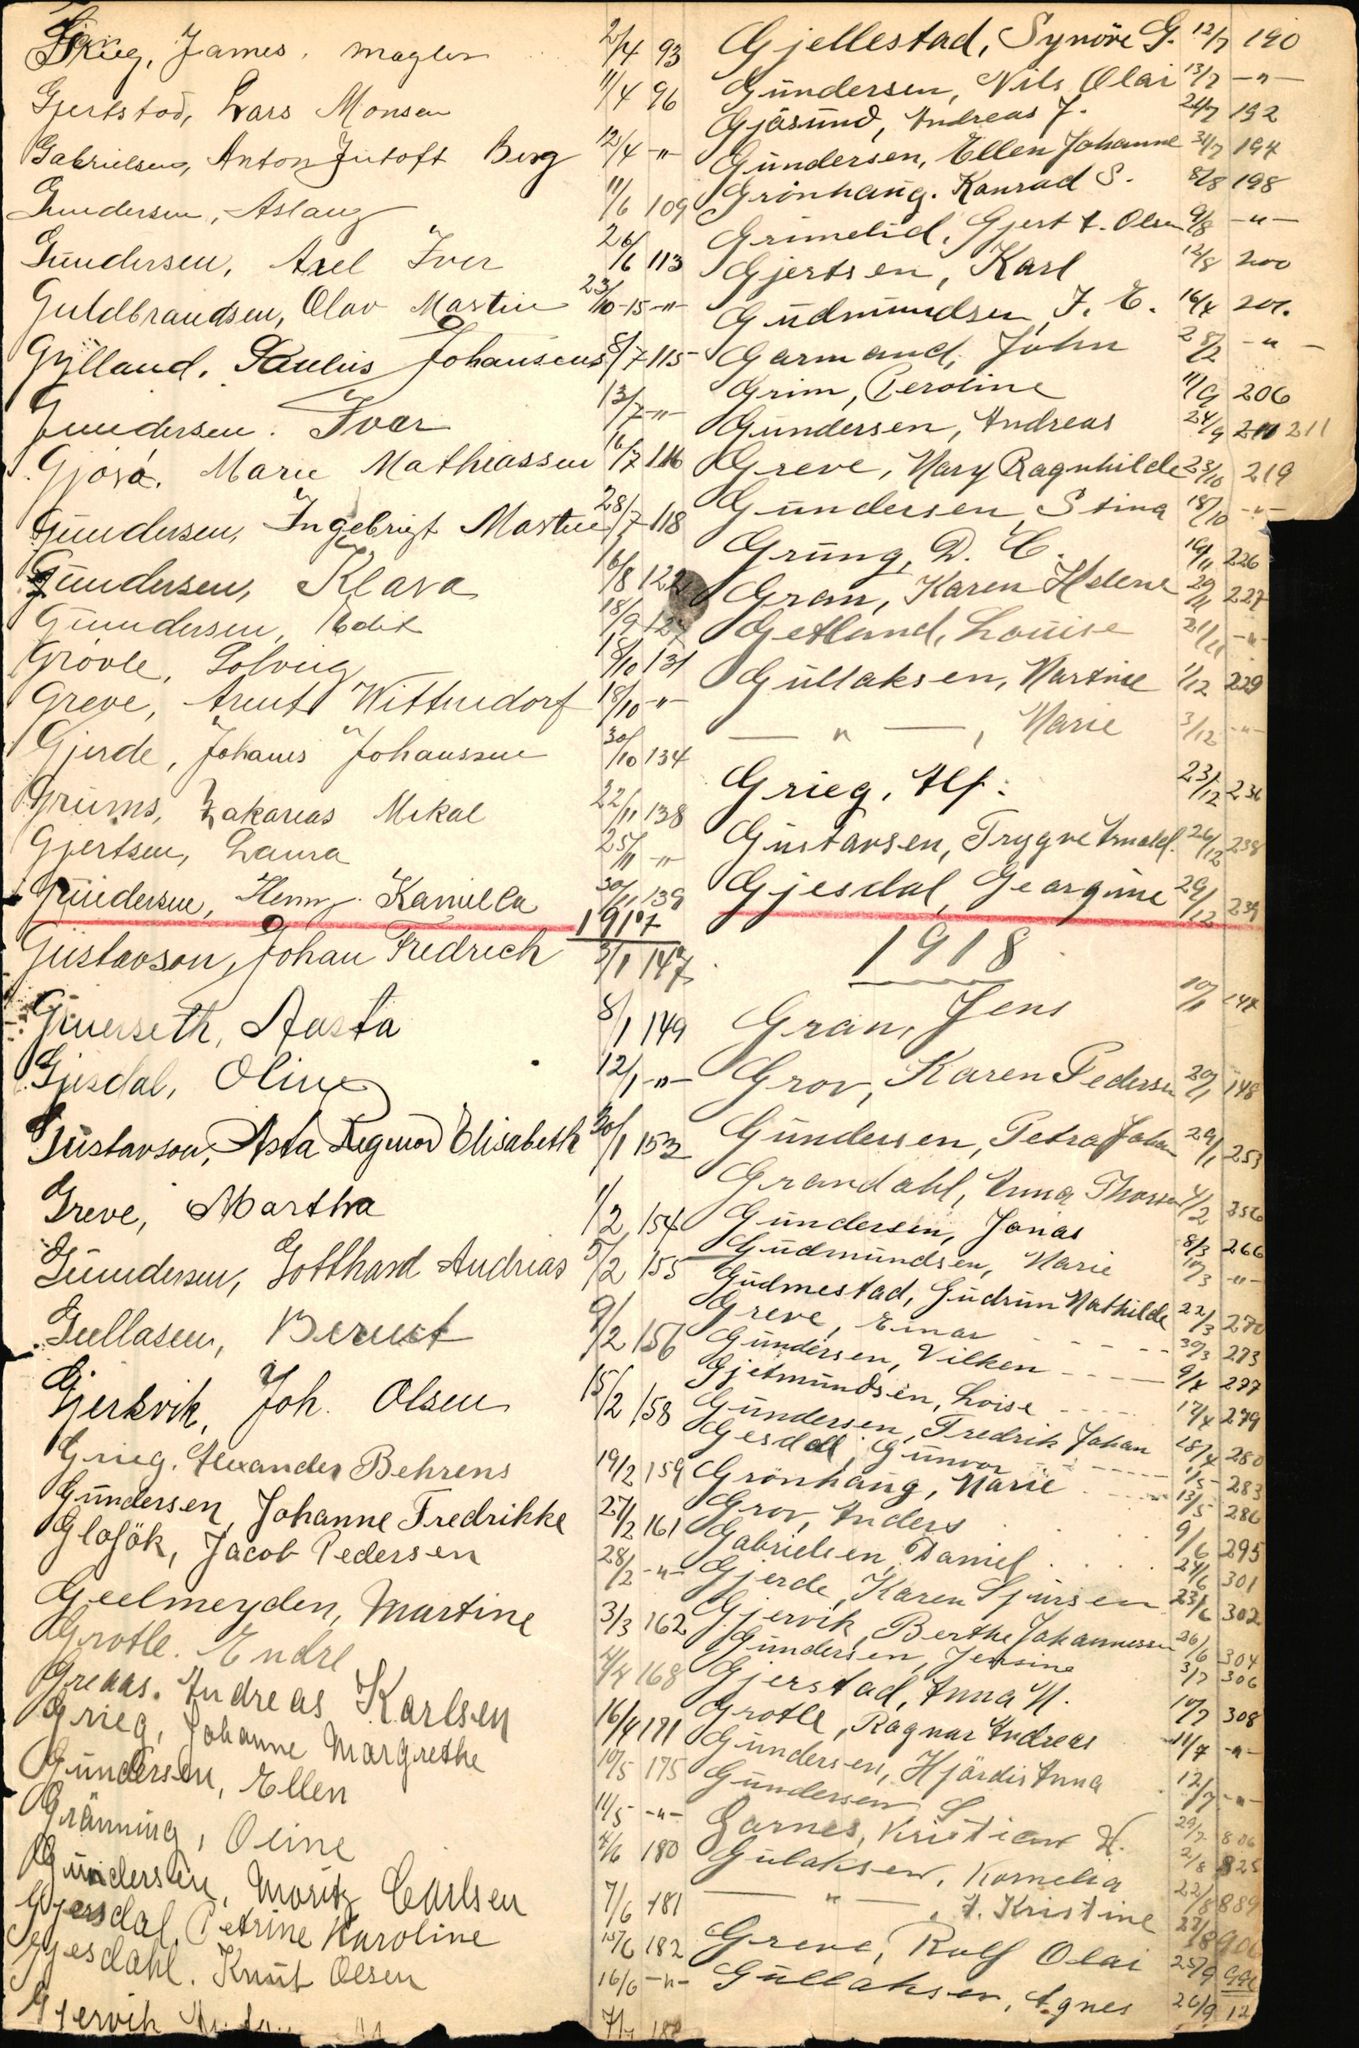 Grieg, James, 2/4 93
Gjertstad, Lars Monsen 11/4 96
Gabrielsen, Anton Berg 12/4 -"-
Gundersen, Aslaug 11/6 109
Gundersen, Axel Iver 26/6 113
Guldbrandsen, Olav Martin 23/10-15 -"-
Gylland, Paulus Johansens 8/7 115
Gundersen. Ivar 13/7 -"-
Gjøsá, Marie Mathiassen 16/7 116
Gundersen, Ingebrigt Martin 28/7 118
Gundersen, Klara 16/8 122
Gundersen, Edit 18/9
Grövle, Solveig 18/10 131
Greve, Arent Wittendorf 18/10 -"-
Gjerde, Johans Johanssen 30/10 134
Grums, Zakarias Mikal 22/11 138
Gjertsen, Laura 25/11 -"-
Gundersen, Henny Kamilla 30/11 139
1917
Gustavson, Johan Fredrich 3/1 147
Aasta 8/1 149
Gjesdal, Oline 12/1 -"-
Gustavson, Asta Regmor Elisabeth 30/1 153
Greve, Martha 1/2 154
Gundersen, Gotthard Andrias 5/2 155
Gullasen, Bernt 9/2 156
Gjerkvik, Joh. Olsen 15/2 158
Grieg. Alexander Behrens 19/2 159
Gundersen, Johanne Fredrikke 27/2 161
Jacob Pedersen 28/2 -"-
Geelmeyden, Martine 3/3 162
Grotle. Endre 4/4 168
Greaas. Andreas Karlsen 16/4 171
Grieg, Johanne Margrethe 10/5 175
Gundersen, Ellen 11/5 -"-
Gränning, Oline 4/6 180
Gundersen, Moritz Carlsen 7/6 181
Gjersdal, Petrine Karoline 15/6 182
Gjesdahl. Knut Olsen 16/6 -"-
Gjervik 7/7
Gjellestad, Synöve G. 12/7 190
Gundersen, Nils Olai 13/7 -"-
Gjäsund, Andreas J. 24/7 192
Gundersen, Ellen Johanne 31/7 194
Grönhaug. Konrad S. 8/8 198
Grimelid, Gjert A. Olsen 9/8 -"-
Gjertsen, Karl 12/8 200
Gudmundsen, J. E. 16/4 201.
Garmand, John 28/2 -"-
Grim, Peroline 11/9 206
Gundersen, Andreas 24/9 211
Greve, Mary Ragnhilde 23/10 219
Gundersen, Stina 18/10 -"-
Grung, D. C. 16/11 226
Gran, Karen Helene 20/11 227
Getland, Louise 21/11 -"-
Gullaksen, Martine 1/12 229
— " —, Marie 3/12 -"-
Grieg, Alf: 23/12 236
Gustavsen, Trygve Arnold. 26/12 238
Gjesdal, Georgine 29/12 239
1918
Gran, Jens 10/1 147
Grov, Karen Pedersen 20/1 148
Gundersen, Petra Johan 29/1 253
Grandahl, Anna 4/2 256
Gundersen, Jonas 8/3 266
Gudmundsen, Marie 10/3 -"-
Gudmestad, Gudrun Mathilde 22/3 270
Greve, Einar 30/3 273
Gundersen, Vilken 9/4 277
Gjetmundsen, Loise 12/4 279
Gundersen, Fredrik Johan 18/4 280
Gesdal, Gunvor 1/5 283
Grönhaug, Marie 13/5 286
Grov, Anders 9/6 295
Gabrielsen, Daniel 24/6 301
Gjerde, Karen Sjursen 23/6 302
Gjervik, Berthe Johannessen 26/6 304
Gundersen, Jensine 3/7 306
Gjerstad, Anna N. 10/7 308
Grotle, Ragnar Andreas 11/7 -"-
Gundersen, Hjördis Anna 12/7 -"-
Gundersen S
Garnes, Kristian H. 29/7 806
Gulaksen, Kornelia 2/8 825
— " —, A. Kristine 22/8 889
Greve, Rolf Olai 27/8 906
Gullaksen, Agnes 25/9
26/9 12